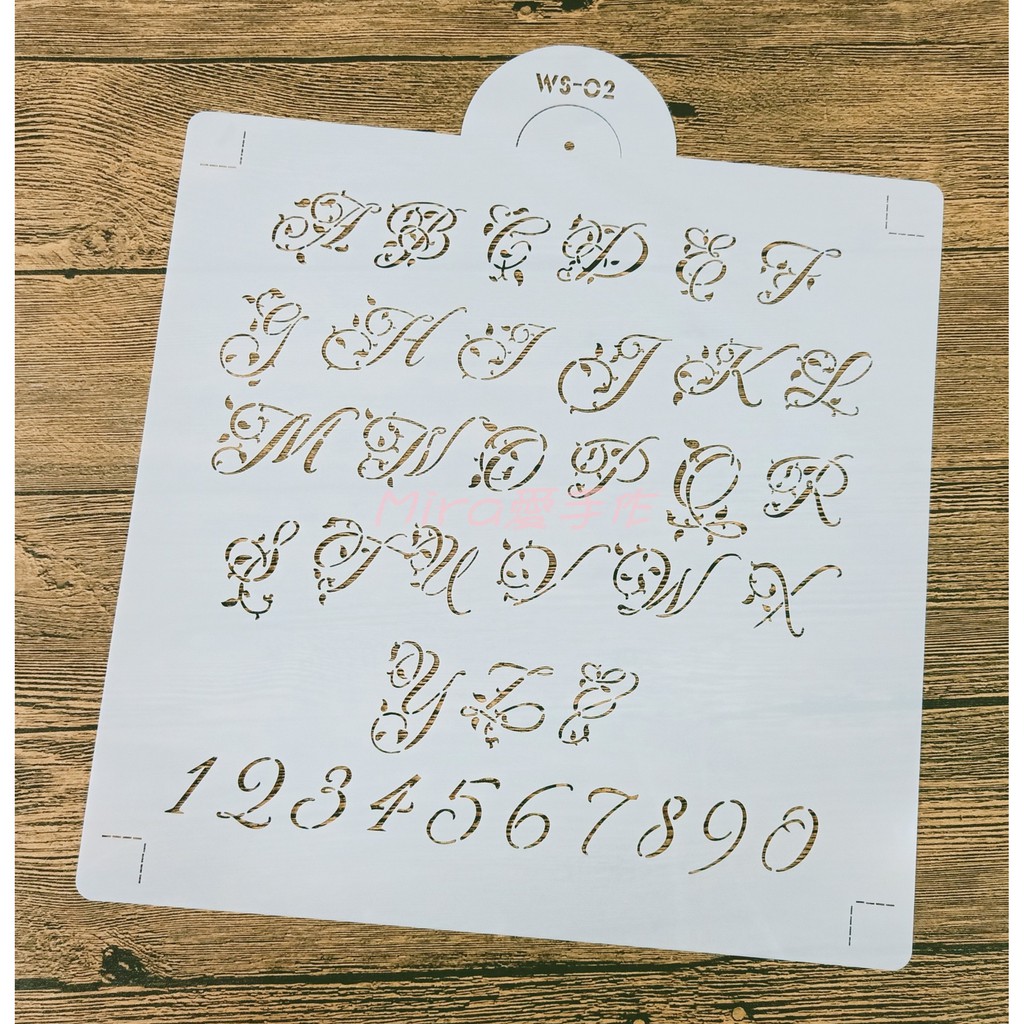 WS-02
A B C D E F
G H I J K L
M N O P Q R
Mira愛手作
S T U V W X
Y Z &
1 2 3 4 5 6 7 8 9 0